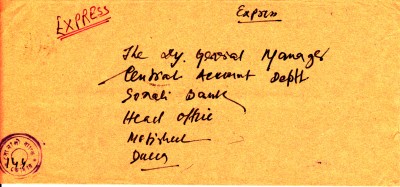 EXPRESS
Express
The Dy. General Manager
Central Account Deptt
Sonali Bank
Head office
Motijheel
Dacca
744